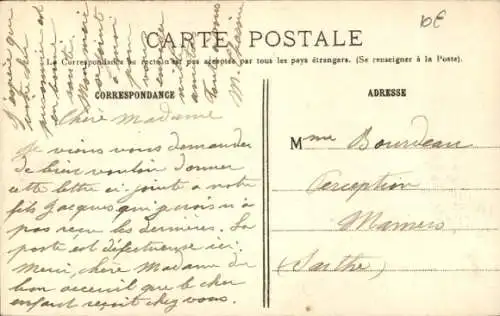 10€
CARTE POSTALE
La Correspondance au recto n'est pas acceptée par tous les pays étrangers. (Se renseigner à la Poste).
CORRESPONDANCE
ADRESSE
Chère Madame
Je viens vous demander
de bien vouloir donner
cette lettre ci-jointe a notre
fils Jacques qui je crois n'a
pas reçu les dernières. La
poste est défectueuse ici.
Merci, chère Madame du
bon accueil que le cher
enfant reçoit chez vous.
J'espère que
votre cher
est
en bonne
santé.
Mon mari
se joint
à moi
pour
vous
Mme Bourdeau
Perception
Mamers
(Sarthe)